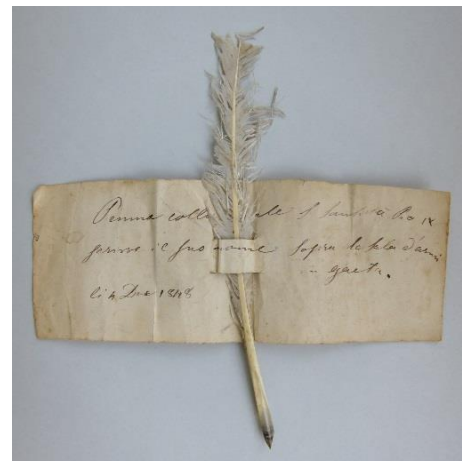 Penna colla le S Santità Pio IX
scrisse il suo nome sopra la sala d'armi
Gaeta.
li 4 Dec 1848